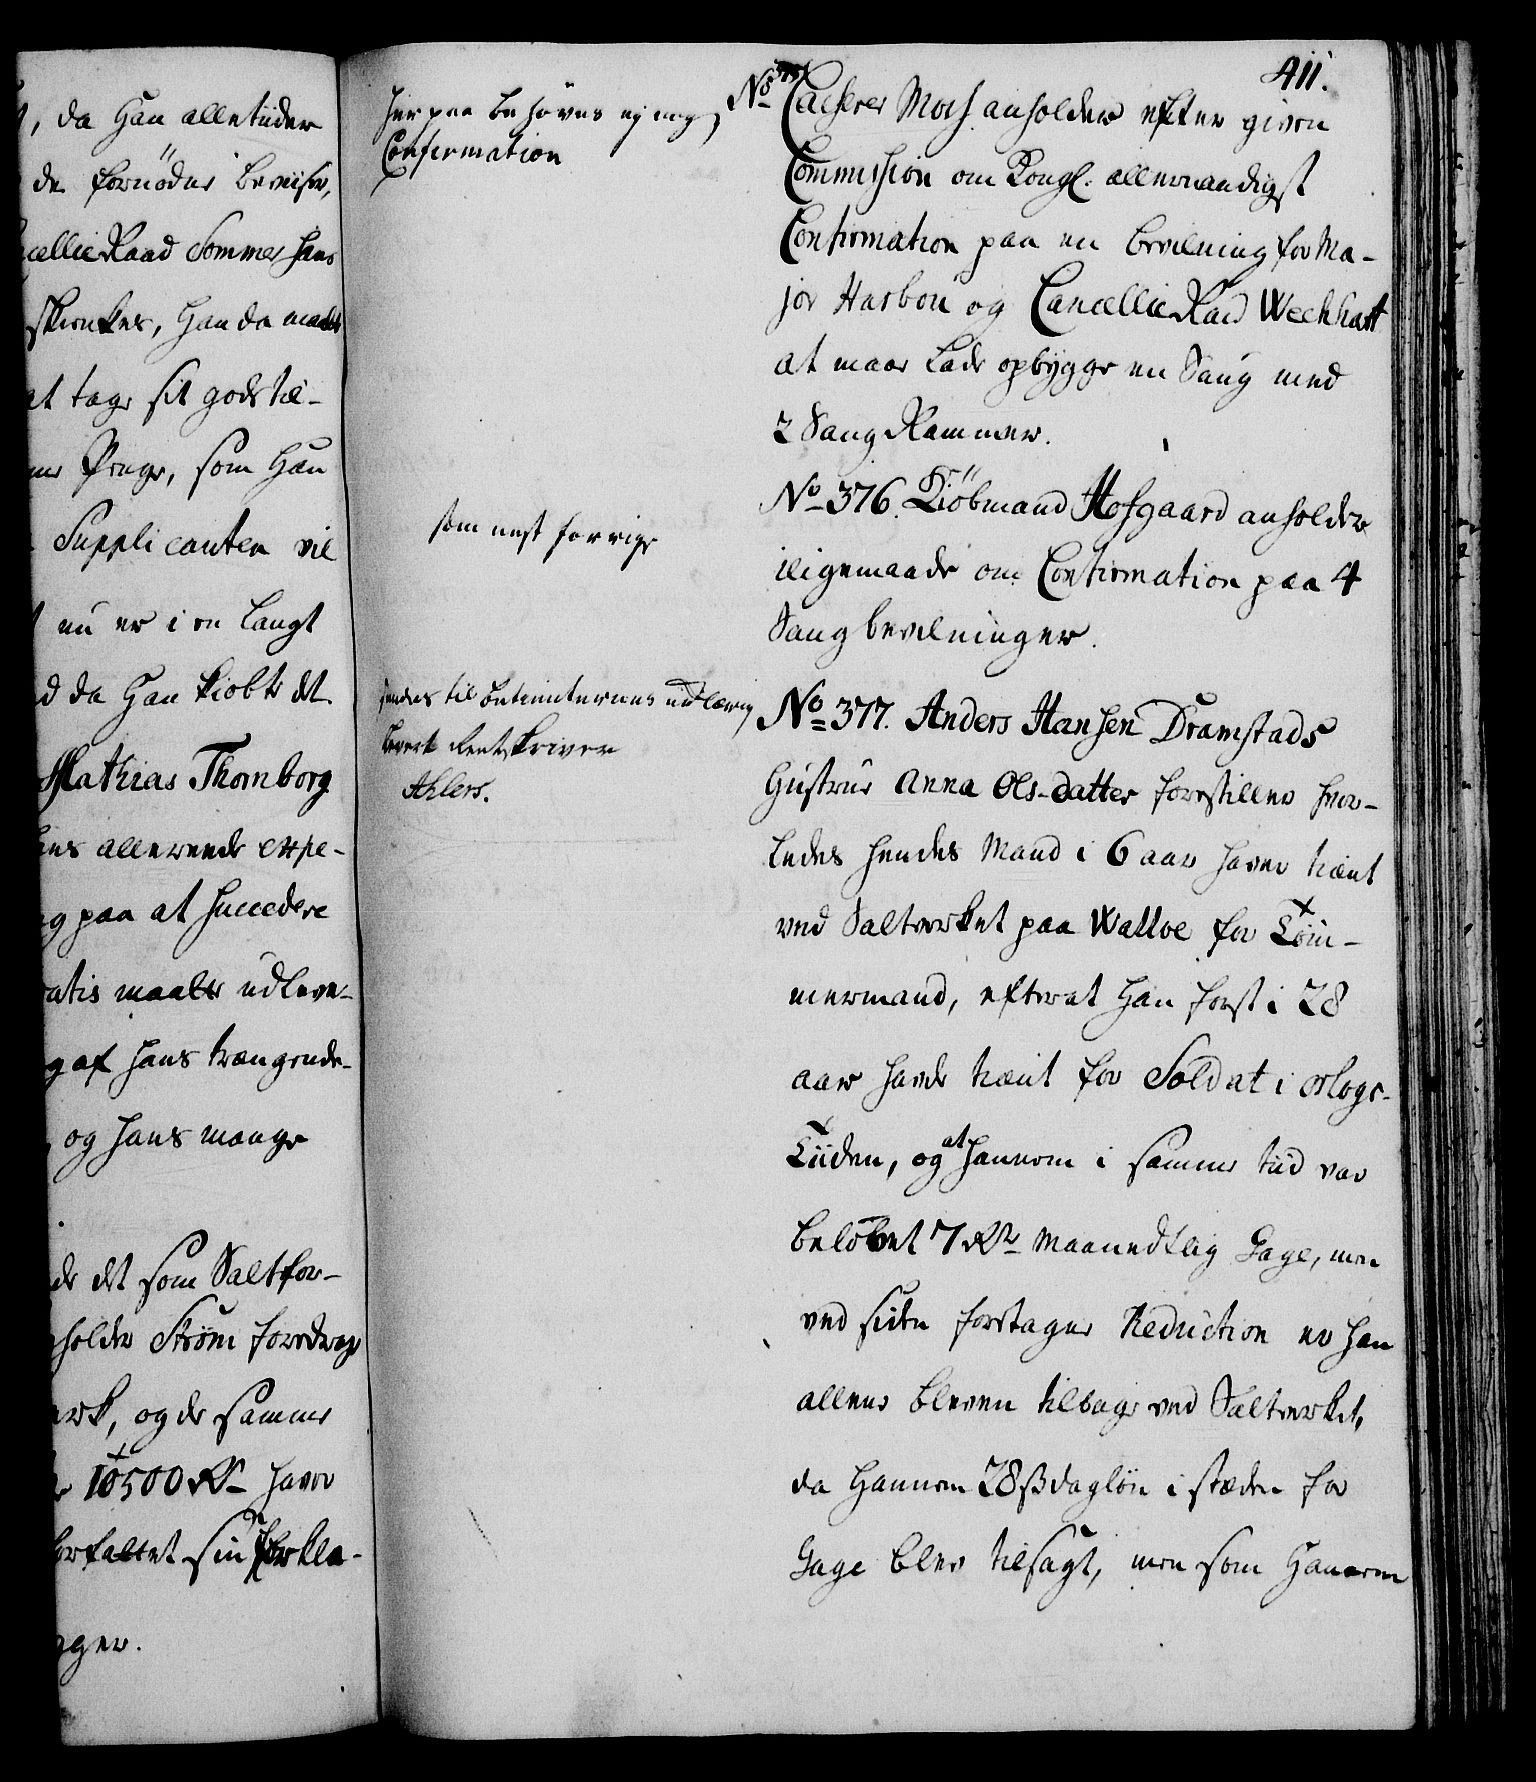 da Han alletiider
de fornødne beviiser,
Raad Sommer hans
skienkes, Han da maatte
at tage sit gods til-
Penge, som Han
Supplicanten vil
nu er i en langt
da Han kiøbte det
Mathias Thornborg
allereede expe-
paa at succedere
maatte udleve-
af hans trængende
og hans mange
det som Saltfor-
Strøm foredrage
og de samme
10500 Rdr haver
forfattet sin forkla-
411.
her paa behøves ej nog
Confirmation
No 375 Casserer Mosh anholder efter given
Commission om Kongl. allernaadigst
Confirmation paa en bevilning for Ma-
jor Harbou og Cancellie Raad Weckhart
at maae lade opbygge en Saug med
2 Saug Rammer.
som nest forrige
No 376. Kiøbmand Hofgaard anholder
iligemaade om Confirmation paa 4
Saug bevilninger.
sendes til betienternes
levert Rentskriver
Ahlers.
No 377. Anders Hansen Dramstads
Hustrue Anna Ols-datter forestiller hvor-
ledes hendes Mand i 6 aar haver tient
ved Saltverket paa Walloe for Töm-
mermand, efterat han først i 28
aar havde tient for Soldat i orlogs-
Tiiden, og at hannem i samme tiid var
belovet 7 Rdr Maanedtlig Gage, men
ved siden foretagne Reduction er han
allene bleven tilbage ved Saltverket,
da Hannem 28 ß dagløn i stæden for
Gage blev tilsagt, men som Hannem